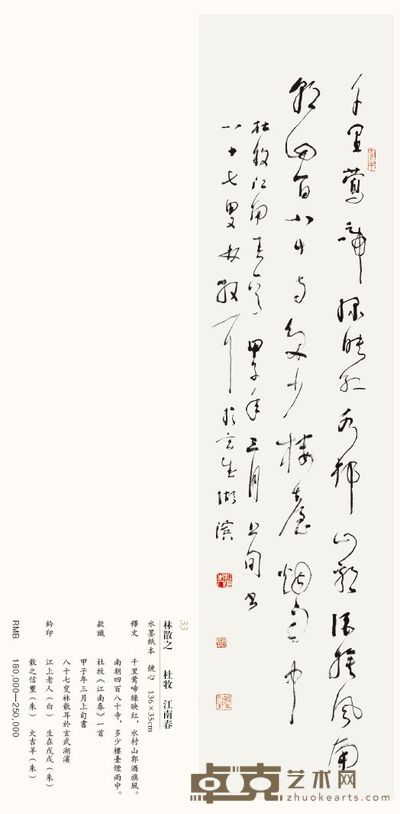 千里莺啼绿映红水村山郭酒旗风南
朝四百八十寺多少楼台烟雨中
杜牧江南春一首 甲子年三月上旬书
八十七叟林散耳於玄武湖滨
33
林散之 杜牧 江南春
水墨紙本 鏡心 136×35cm
釋文
千里鶯啼綠映紅，水村山郭酒旗風。
南朝四百八十寺，多少樓臺煙雨中。
款識
杜牧《江南春》一首
甲子年三月上旬書
八十七叟林散耳於玄武湖濱
鈐印
江上老人（白） 生在戊戌（朱）
散之信璽（朱） 大吉羊（朱）
RMB 180,000—250,000
卓克艺术网
zhuokearts.com